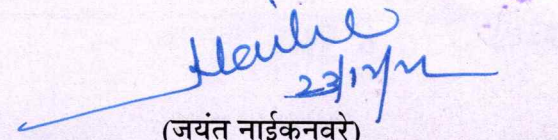 23/12/22
(जयंत नाईकनवरे)